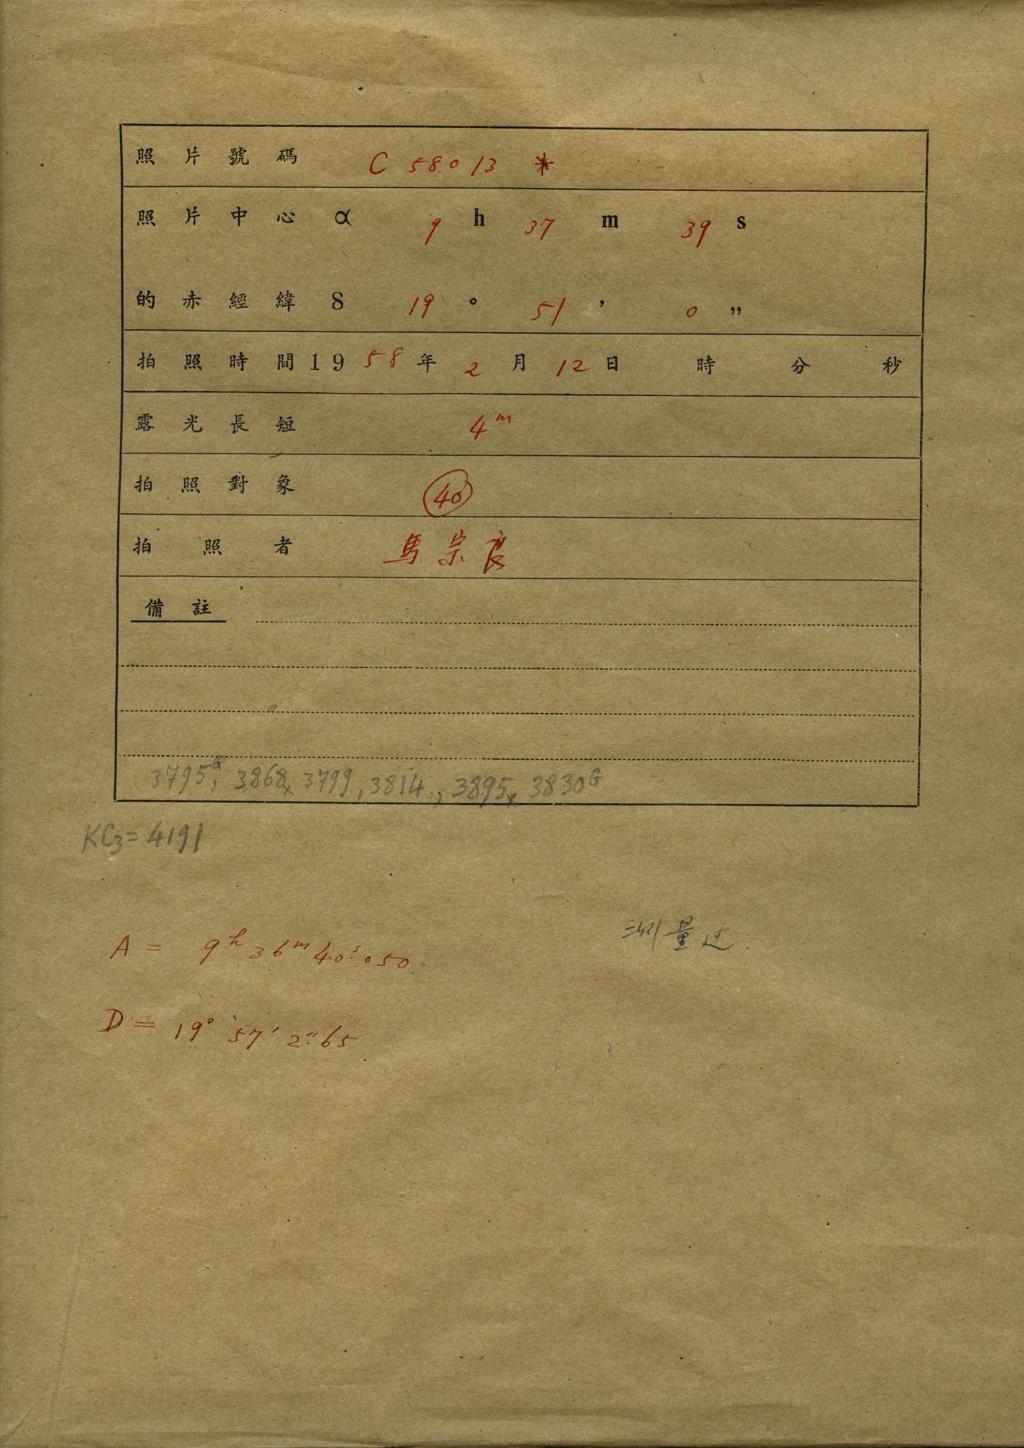 照片號碼 C 58013 *
照片中心 α 9 h 37 m 39 s
的赤經緯 δ 19 ° 51 ' 0 "
拍照時間 1958 年 2 月 12 日 時 分 秒
露光長短 4m
拍照對象 40
拍照者 馬宗良
備註
3795G, 3868x 3799, 3814, 3895x 3830G
KC3=4191
測量过
A = 9h 36m 40s.050
D = 19° 57' 2".65